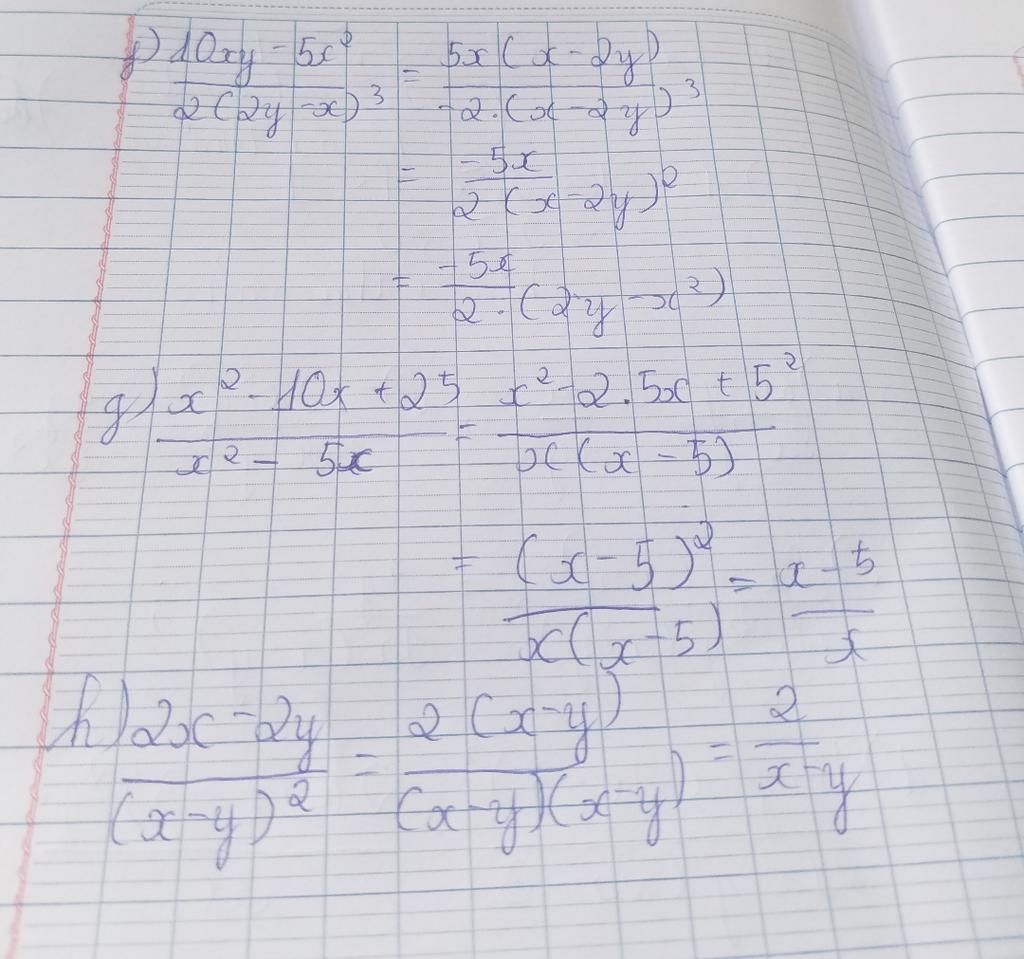 f) (10xy - 5x²)/(2(2y - x)³) = (5x(x - 2y))/(-2.(x - 2y)³)
= (-5x)/(2(x - 2y)²)
= (-5x)/2.(2y - x²)
g) (x² - 10x + 25)/(x² - 5x) = (x² - 2.5x + 5²)/(x(x - 5))
= (x - 5)²/(x(x - 5)) = (x - 5)/x
h) (2x - 2y)/(x - y)² = (2(x - y))/((x - y)(x - y)) = 2/(x - y)